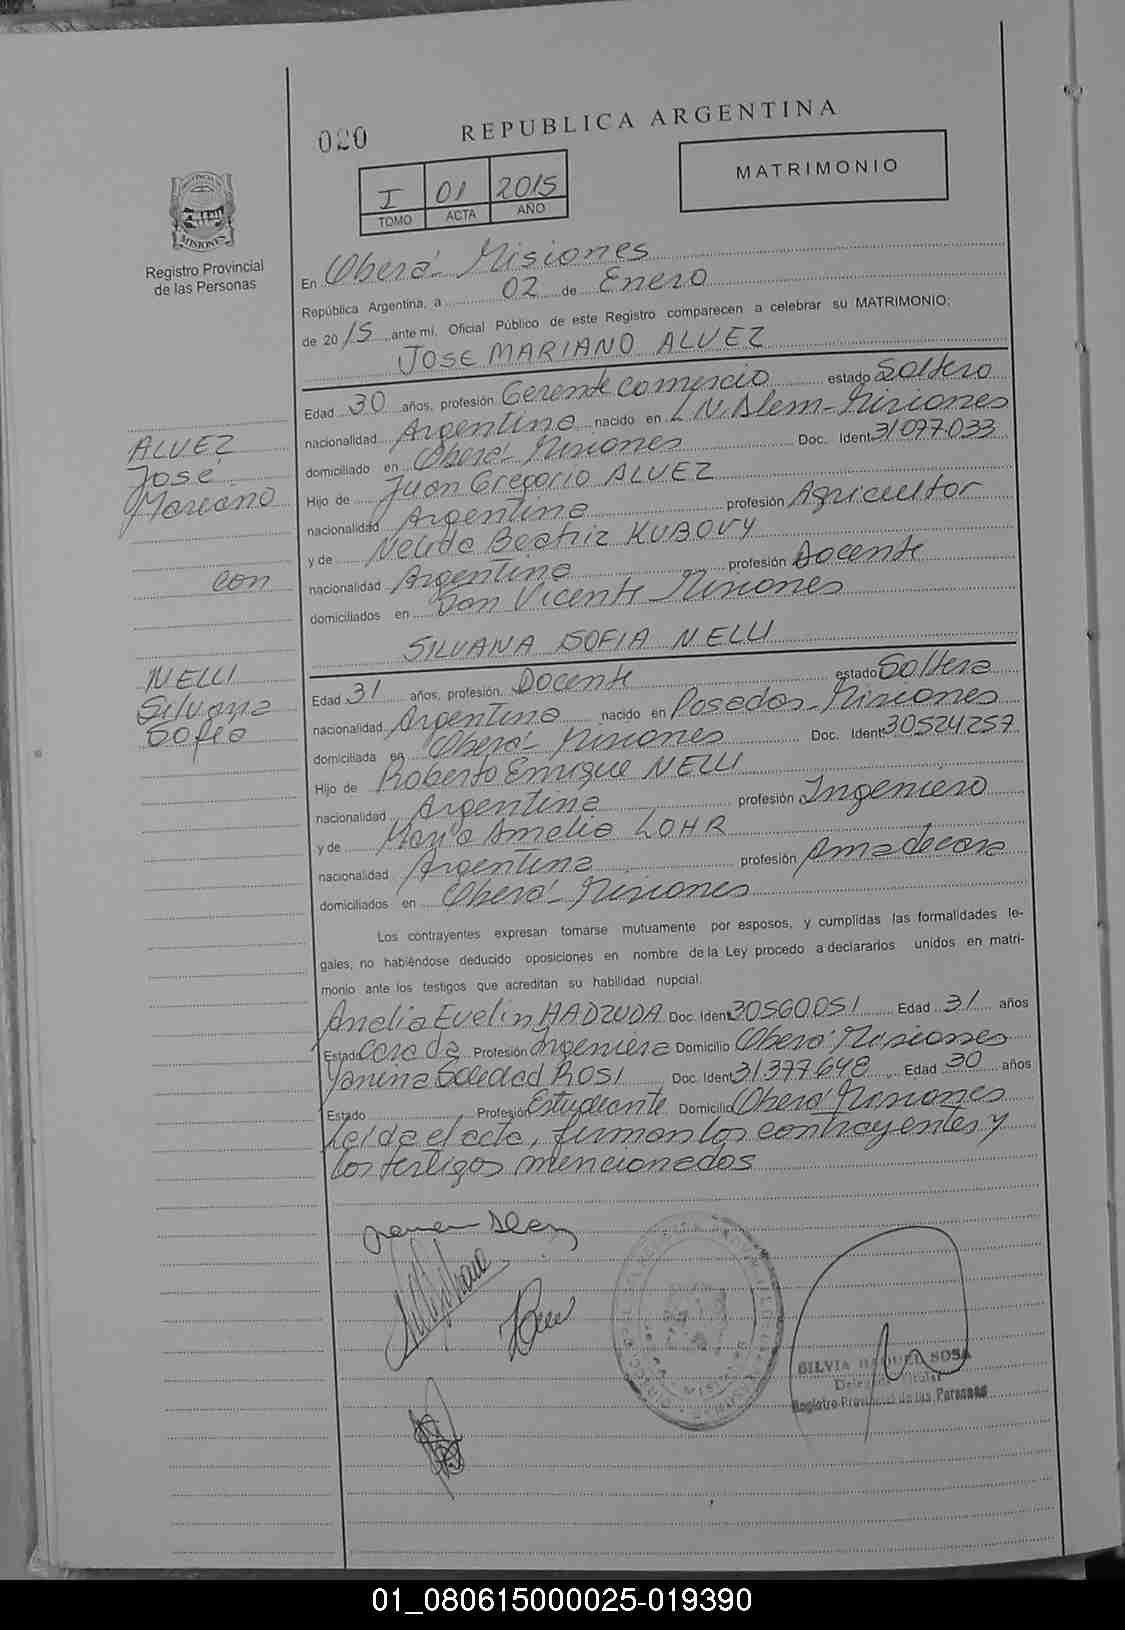 020
REPUBLICA ARGENTINA
MATRIMONIO
I 01 2015
TOMO ACTA AÑO
PROVINCIA DE
MISIONES
Registro Provincial
de las Personas
En Oberá - Misiones
República Argentina, a 02 de Enero
de 2015 ante mí, Oficial Público de este Registro comparecen a celebrar su MATRIMONIO;
JOSE MARIANO ALVEZ
Edad 30 años, profesión Gerente comercio estado Soltero
nacionalidad Argentina nacido en L.N. Alem - Misiones
domiciliado en Oberá - Misiones Doc. Ident 31077033
Hijo de Juan Gregorio ALVEZ
nacionalidad Argentina profesión Agricultor
y de Nelida Beatriz KUBOVY
nacionalidad Argentina profesión Docente
domiciliados en Don Vicente - Misiones
ALVEZ
José
Mariano
con
NELLI
Silvana
Sofia
SILVANA SOFIA NELLI
Edad 31 años, profesión, Docente estado Soltera
nacionalidad Argentina nacido en Posadas - Misiones
domiciliada en Oberá - Misiones Doc. Ident 30524257
Hijo de Roberto Enrique NELLI
nacionalidad Argentina profesión Ingeniero
y de María Amelia LOHR
nacionalidad Argentina profesión Ama de casa
domiciliados en Oberá - Misiones
Los contrayentes expresan tomarse mutuamente por esposos, y cumplidas las formalidades le-
gales, no habiéndose deducido oposiciones en nombre de la Ley procedo a declararlos unidos en matri-
monio ante los testigos que acreditan su habilidad nupcial.
Analia Evelin HADZUDA Doc. Ident 30560051 Edad 31 años
Estado Casada Profesión Ingeniera Domicilio Oberá Misiones
Yanina Soledad ROSI Doc. Ident 31377648 Edad 30 años
Estado Profesión Estudiante Domicilio Oberá Misiones
Leída el acta, firman los contrayentes y
los testigos mencionados
SILVIA RAQUEL SOSA
Delegada Titular
Registro Provincial de las Personas
01_080615000025-019390